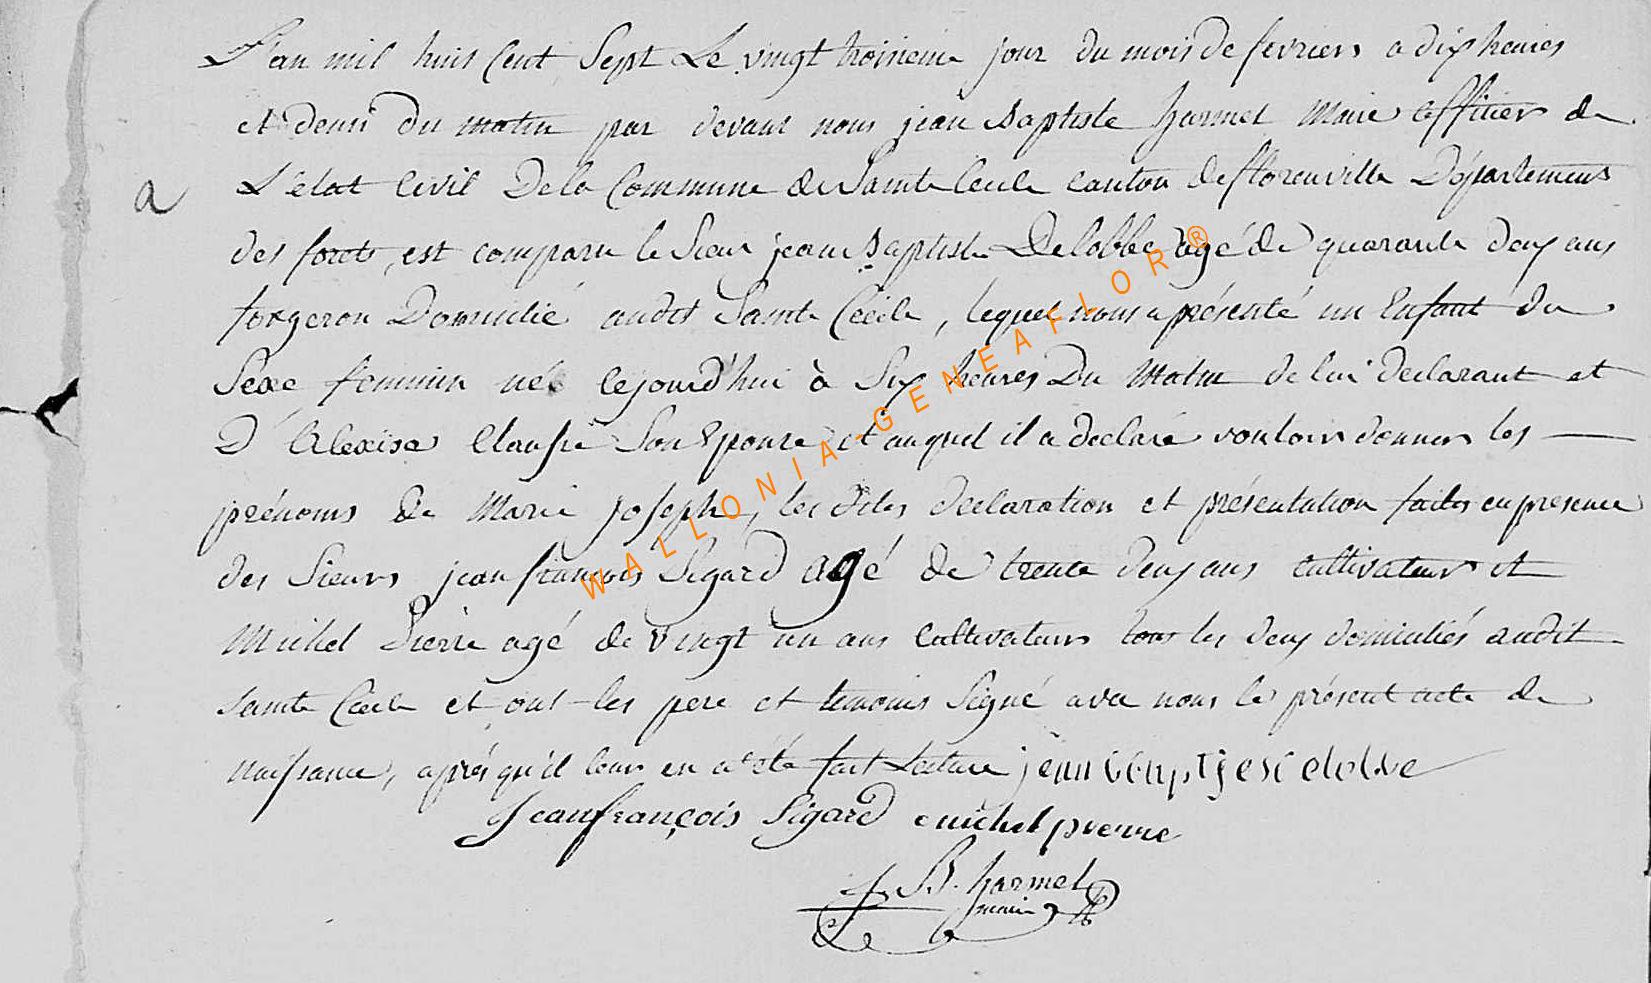 L'an mil huit Cent Sept Le vingt troisieme jour du mois de fevrier a dix heures
et demi du matin par devant nous jean Baptiste harmel Maire officier de
a L'état Civil De la Commune de Sainte Cecile canton de florenville Département
des forets, est comparu le Sieur jean Baptiste Delobbe agé de quarante deux ans
forgeron Domicilié audit Sainte Cécile, lequel nous a présenté un Enfant du
Sexe feminin née cejourd'hui à Six heures Du Matin de lui declarant et
D'Alexise Clausse Son Epouse et auquel il a declaré vouloir donner les
prénoms de Marie Joseph, les dites declaration et présentation faites en presence
des Sieurs jean françois Sigard agé de trente deux ans cultivateur et
Michel Pierre agé de vingt un ans Cultivateur tous les deux domiciliés audit
Sainte Cecile et ont les pere et temoins Signé avec nous le présent acte de
naissance, après qu'il leur en a été fait Lecture jean baptjese delobbe
Jeanfrançois Sigard michel pierre
J. B. harmel
maire
WALLONIA-GENEAFLOR®